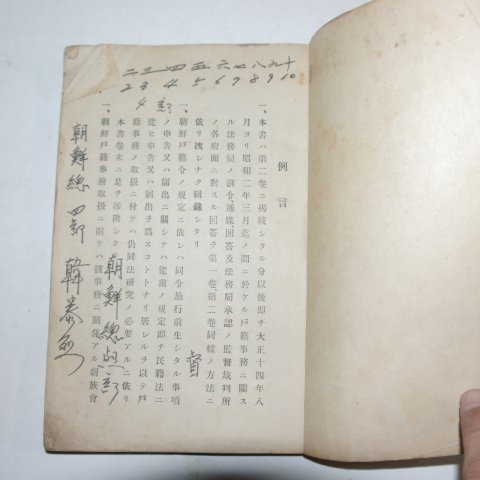 二三四五六七八九十
2 3 4 5 6 7 8 9 10
例言
一、本書ハ第二卷ニ揭載シタル分以後卽チ大正十四年八
月ヨリ昭和二年三月迄ノ間ニ於ケル戶籍事務ニ關ス
ル法務局ノ訓令、通牒、回答及法務局承認ノ監督裁判所
ノ各府面ニ對スル回答ヲ第一卷、第二卷同樣ノ方法ニ
依リ洩レナク輯錄シタリ
督
一、朝鮮戶籍令ノ規定ニ依レハ同令施行前生シタル事項
ノ申告又ハ屆出ニ關シテハ從前ノ規定卽チ民籍法ニ
從ヒ申告又ハ屆出ヲ爲スコトトナリ居レルヲ以テ戶
籍事務ノ取扱ニ付テハ仍同法硏究ノ必要アルニ依リ
本書卷末ニ是ヲ添附シタ
朝鮮總
一、朝鮮戶籍事務取扱ニ付テハ該事務ニ關係アル親族會
朝鮮總
韓泰